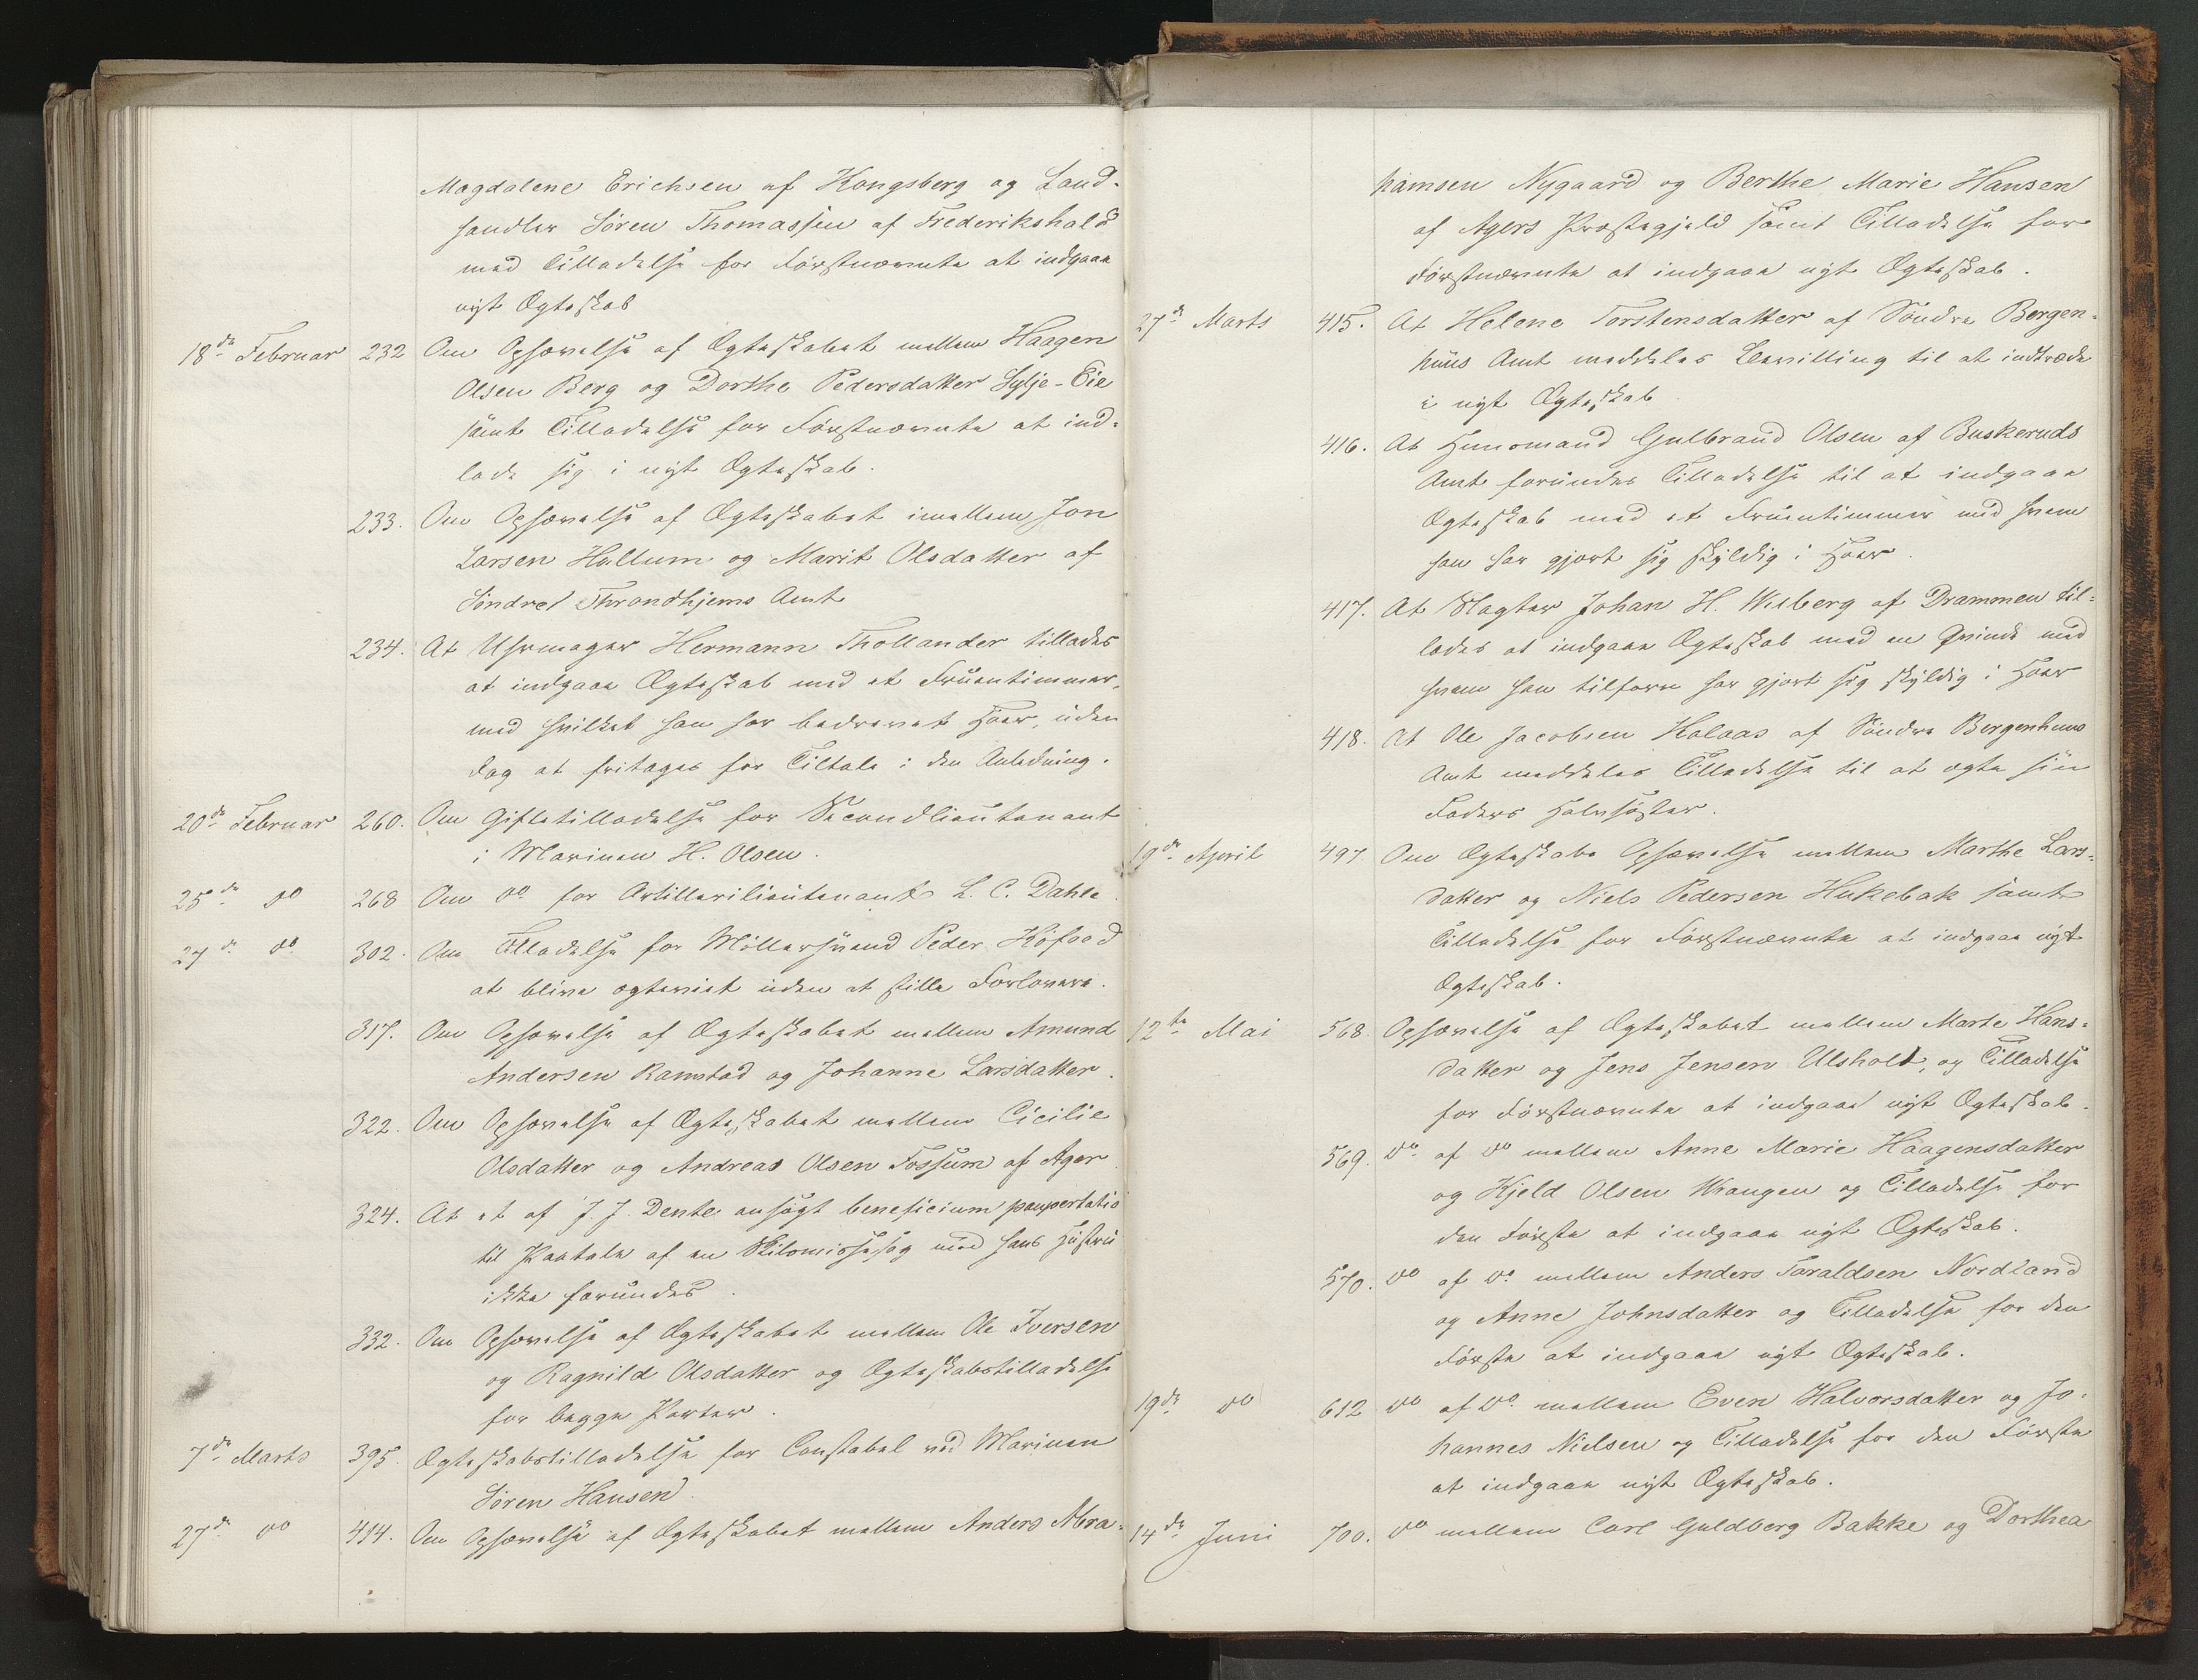 Magdalene Erichsen af Kongsberg og Land-
handler Sören Thomassen af Frederikshald
med Tilladelse for Förstnævnte at indgaae
nyt Ægteskab
18de Februar 232 Om Ophævelse af Ægteskabet mellem Haagen
Olsen Berg og Dorthe Pedersdatter Sylje-Eie
samt Tilladelse for Förstnævnte at ind-
lade sig i nyt Ægteskab.
233. Om Ophævelse af Ægteskabet imellem Jon
Larsen Hallum og Marit Olsdatter af
Söndre Throndhjems Amt
234. At Uhrmager Hermann Thollander tillades
at indgaae Ægteskab med et Fruentimmer,
med hvilket han har bedrevet Hoer, uden
dog at fritages for Tiltale i den Anledning.
20de Februar 260. Om Giftetilladelse for Secondlieutenant
i Marinen H. Olsen.
25de do 268 Om do for Artillerilieutenant L. C. Dahle.
27de do 302. Om Tilladelse for Möllersvend Peder Kofoed
at blive ægteviet uden at stille Forlovere.
317. Om Ophævelse af Ægteskabet mellem Amund
Andersen Ramstad og Johanne Larsdatter.
322. Om Ophævelse af Ægteskabet mellem Cicilie
Olsdatter og Andreas Olsen Fossum af Ager
324. At et af J. J. Dente ansögt beneficium paupertatis
til Paatale af en Skilsmissesag mod hans Hustru
ikke forundes.
332. Om Ophævelse af Ægteskabet mellem Ole Iversen
og Ragnild Olsdatter og Ægteskabstilladelse
for begge Parter.
7de Marts 395. Ægteskabstilladelse for Constabel ved Marinen
Sören Hansen.
27de do 414. Om Ophævelse af Ægteskabet mellem Anders Abra-
hamsen Nygaard og Berthe Marie Hansen
af Agers Præstegjeld samt Tilladelse for
Förstnævnte at indgaae nyt Ægteskab.
27de Marts 415. At Helene Torstensdatter af Söndre Bergen-
huus Amt meddeles Bevilling til at indtræde
i nyt Ægteskab
416. At Huusmand Gulbrand Olsen af Buskeruds
Amt forundes Tilladelse til at indgaae
Ægteskab med et Fruentimmer med hvem
han har gjort sig skyldig i Hoer.
417. At Slagter Johan H. Wiberg af Drammen til-
lades at indgaae Ægteskab med en Qvinde med
hvem han tilforn har gjort sig skyldig i Hoer
418. At Ole Jacobsen Holaas af Söndre Bergenhuus
Amt meddeles Tilladelse til at ægte sin
Faders Halvsöster.
19de April 497. Om Ægteskabs Ophævelse mellem Marthe Lars-
datter og Niels Pedersen Hukebak samt
Tilladelse for Förstnævnte at indgaae nyt
Ægteskab.
12te Mai 568. Ophævelse af Ægteskabet mellem Marte Hans-
datter og Jens Jensen Ulsholt, og Tilladelse
for Förstnævnte at indgaae nyt Ægteskab.
569. do af do mellem Anne Marie Haagensdatter
og Kjeld Olsen Wrangen og Tilladelse for
den Förste at indgaae nyt Ægteskab.
570. do af do mellem Anders Taraldsen Nordland
og Anne Johnsdatter og Tilladelse for den
Förste at indgaae nyt Ægteskab.
19de do 612 do af do mellem Even Halvorsdatter og Jo-
hannes Nielsen og Tilladelse for den Förste
at indgaae nyt Ægteskab.
14de Juni 700. do mellem Carl Guldberg Bakke og Dorthea